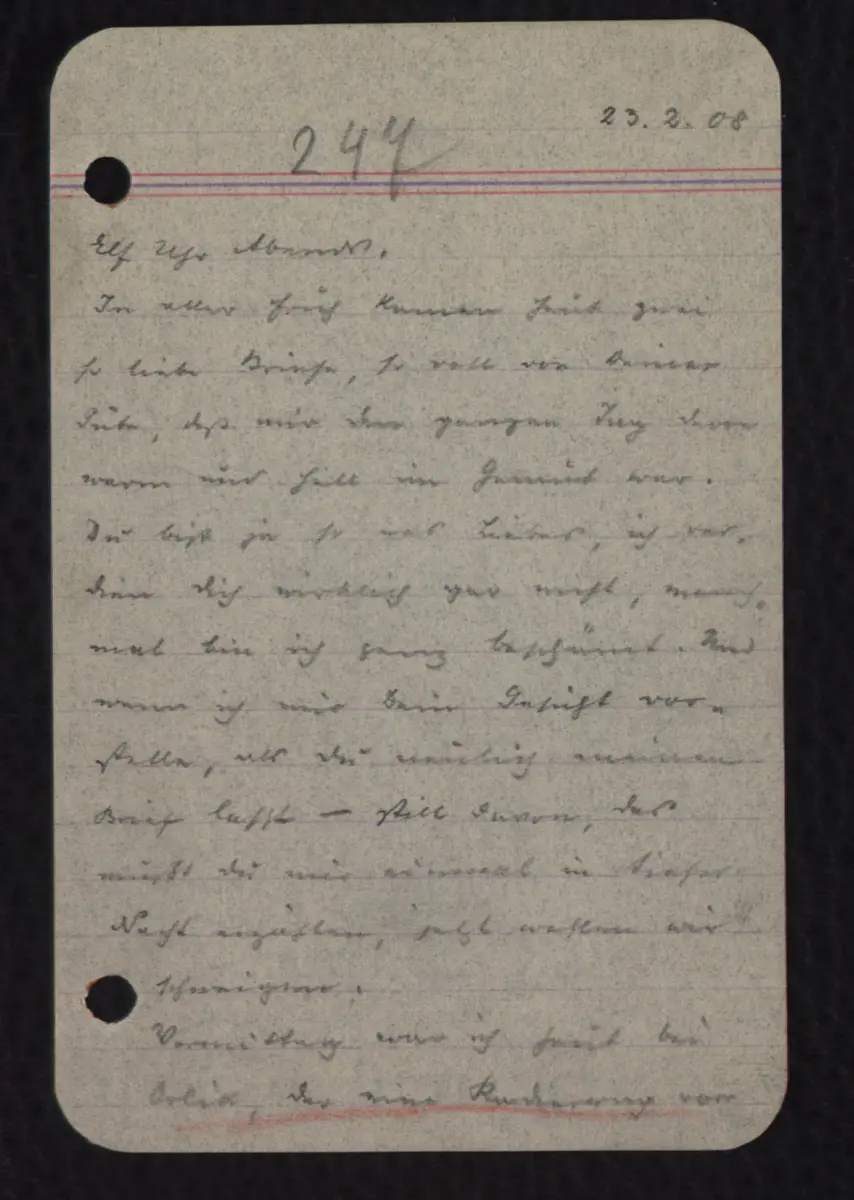 23. 2. 08
247
Elf Uhr Abends.
In aller Früh kamen heut zwei
so liebe Briefe, so voll von Deiner
Güte, daß mir den ganzen Tag davon
warm und hell im Gemüt war.
Du bist ja so was Liebes, ich ver-
dien Dich wirklich gar nicht, manch-
mal bin ich ganz beschämt. Und
wenn ich mir Dein Gesicht vor-
stelle, als Du neulich meinen
Brief last — still davon, das
mußt Du mir einmal in tiefer
Nacht erzählen, jetzt wollen wir
schweigen.
Vormittag war ich heut bei
Orlik, der eine Radierung von